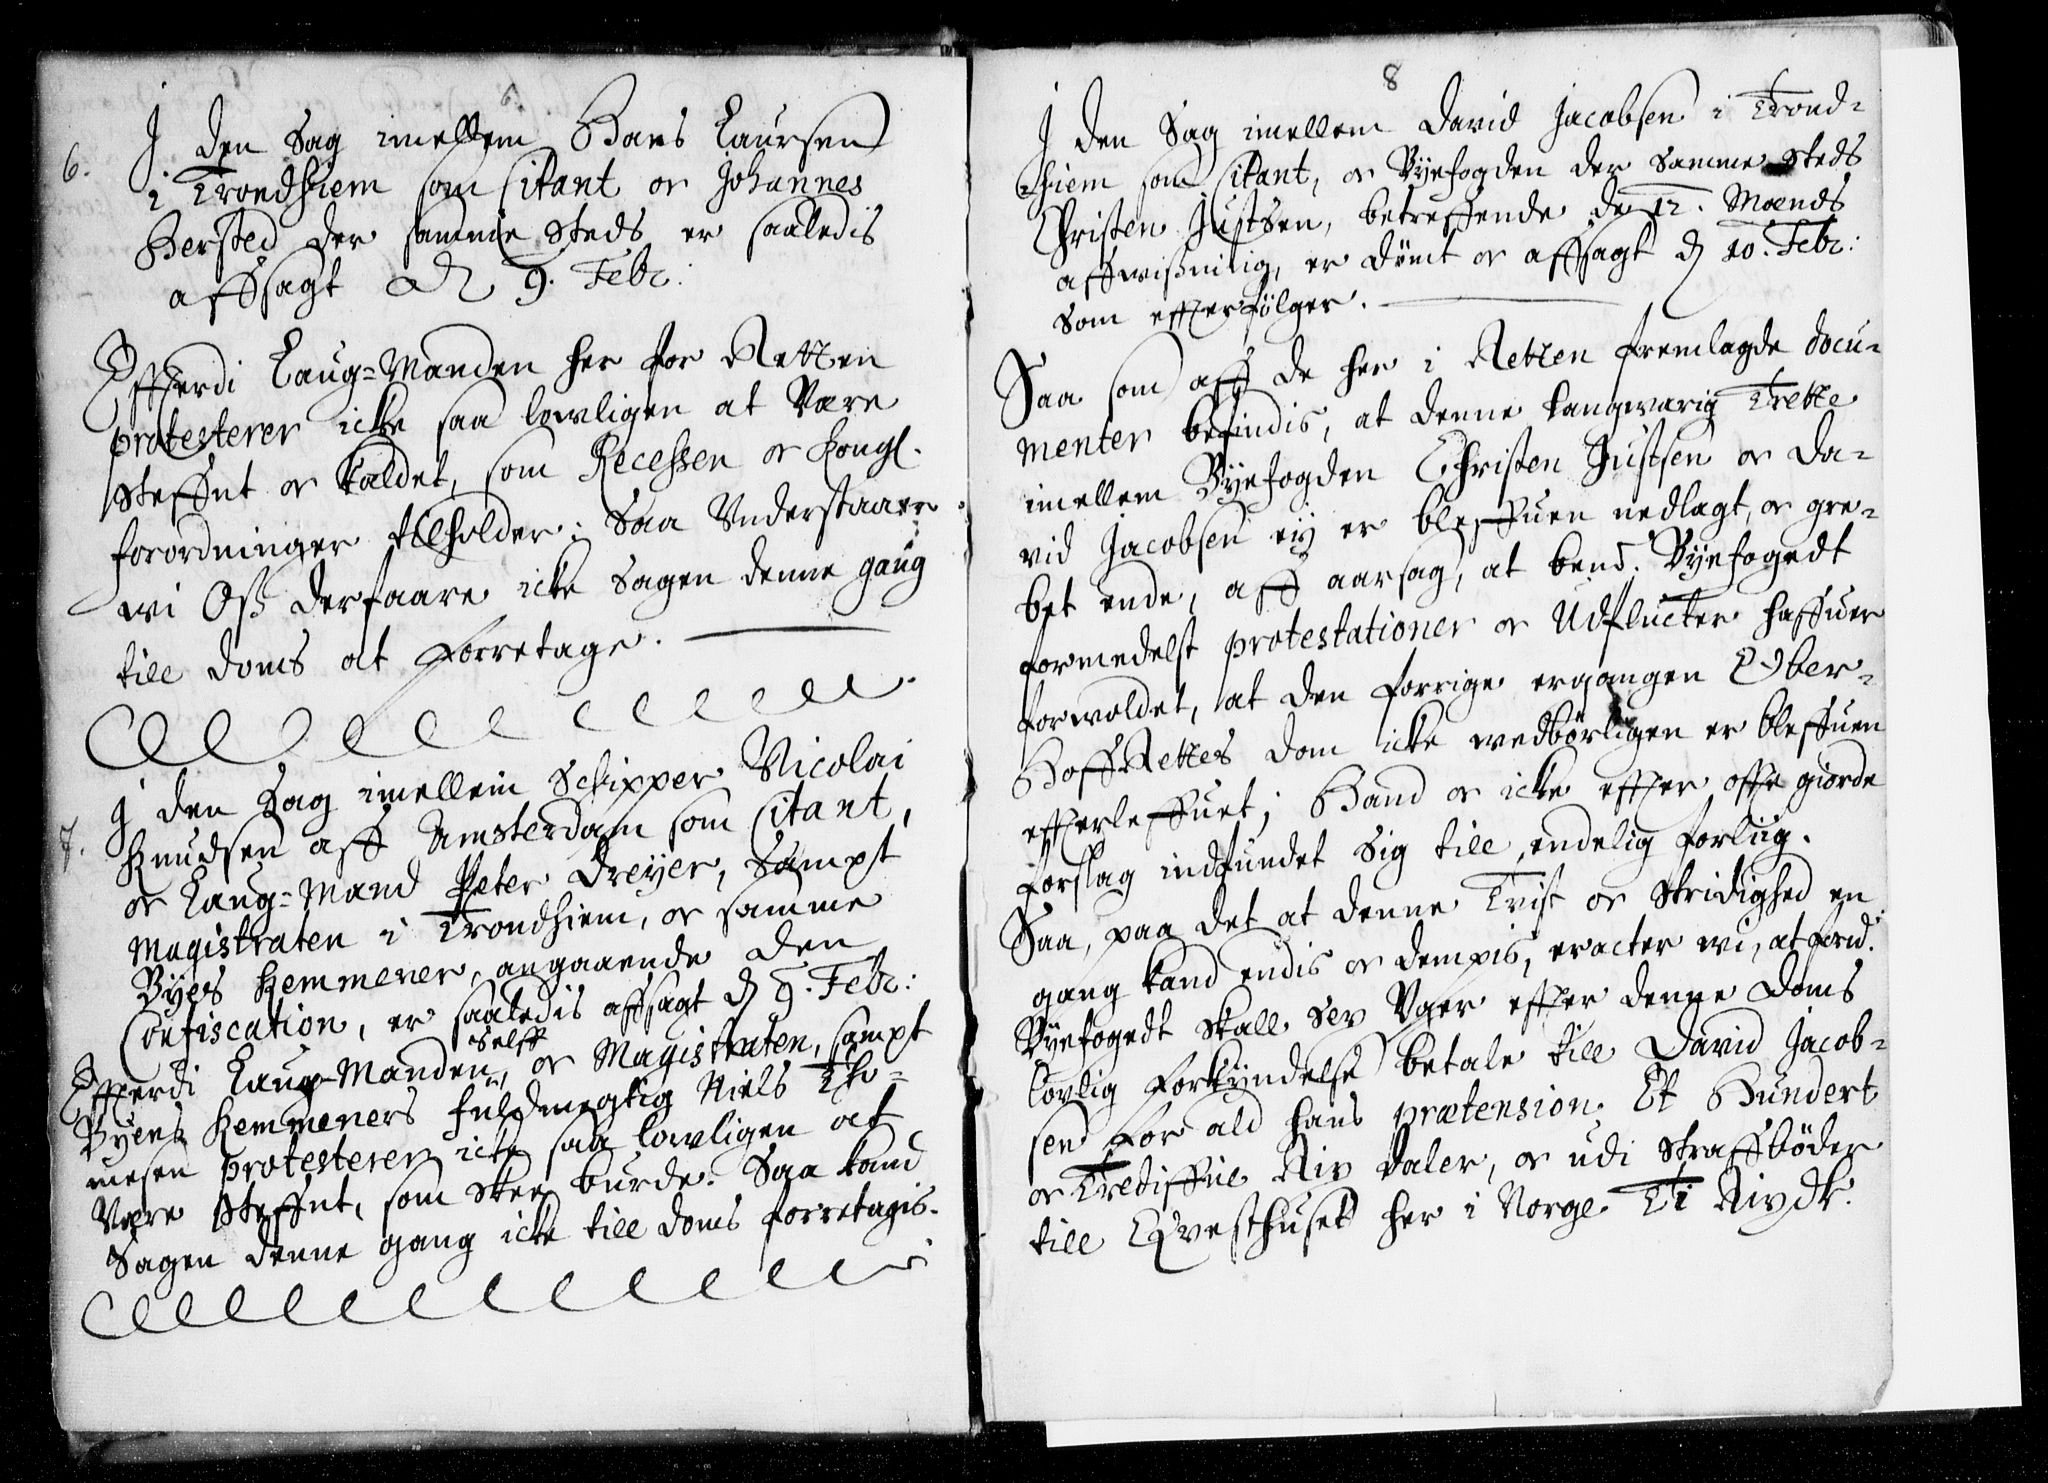 6.
J den Sag imellem Hans Laursen
i Trondhiem som Citant oc Johannes
Hersted der samme steds er saaledis
affsagt d. 9. Febr:
Efterdi Laug-Manden her for Retten
protesterer icke saa lowligen at Være
steffnt oc kaldet, som Recessen oc Kongl.
forordninger tilholder: Saa Understaar
wi Oss derfaare icke Sagen denne gang
till doms at forretage.
7.
J den Sag imellem Schipper Nicolai
Knudsen aff Amsterdam som Citant,
oc Laug-Mand Peter Dreyer, Sampt
Magistraten i Trondhiem, oc samme
Byes Kemmener, angaaende den
Confiscation, er saaledis affsagt d. 9. Febr:
Efterdi Laug-Manden selff, oc Magistraten, sampt
Byens Kemmeners fuldmegtig Niels Tho-
mesen protesterer icke saa lowligen at
Være Steffnt, som skee burde. Saa kand
Sagen denne gang icke till doms forretagis.
8
J den Sag imellem David Jacobsen i Trond-
hiem som Citant, oc Byefogden der samme steds
Christen Justsen, betreffende de 12. Mænds
affwissning, er dømt oc affsagt d. 10. Febr:
som effterfølger.
Saa som aff de her i Retten fremlagde docu-
menter befindis, at denne langwarig Trette
imellem Byefogden Christen Justsen oc Da-
vid Jacobsen ey er bleffuen nedlagt, oc gre-
bet ende, aff aarsag, at bend. Byefogedt
formedelst protestationer oc Udflucter haffuer
forwoldet, at den forrige ergangen Ober-
HoffRettes dom icke wedbørligen er bleffuen
effterleffuet; Hand oc icke effter offte giorde
forslag indfundet sig till endelig forliig.
Saa, paa det at denne Tvist oc stridighed en
gang kand endis oc dempis, eracter wi, at ford.
Byefogedt skall Sex Uger effter denne Doms
lovlig forkyndelse betale till David Jacob-
sen for ald hans prætension Et Hundert
oc Trediffue Rix Daler, oc udi straffbøder
till Qvesthuset her i Norge Ti Rixdr.